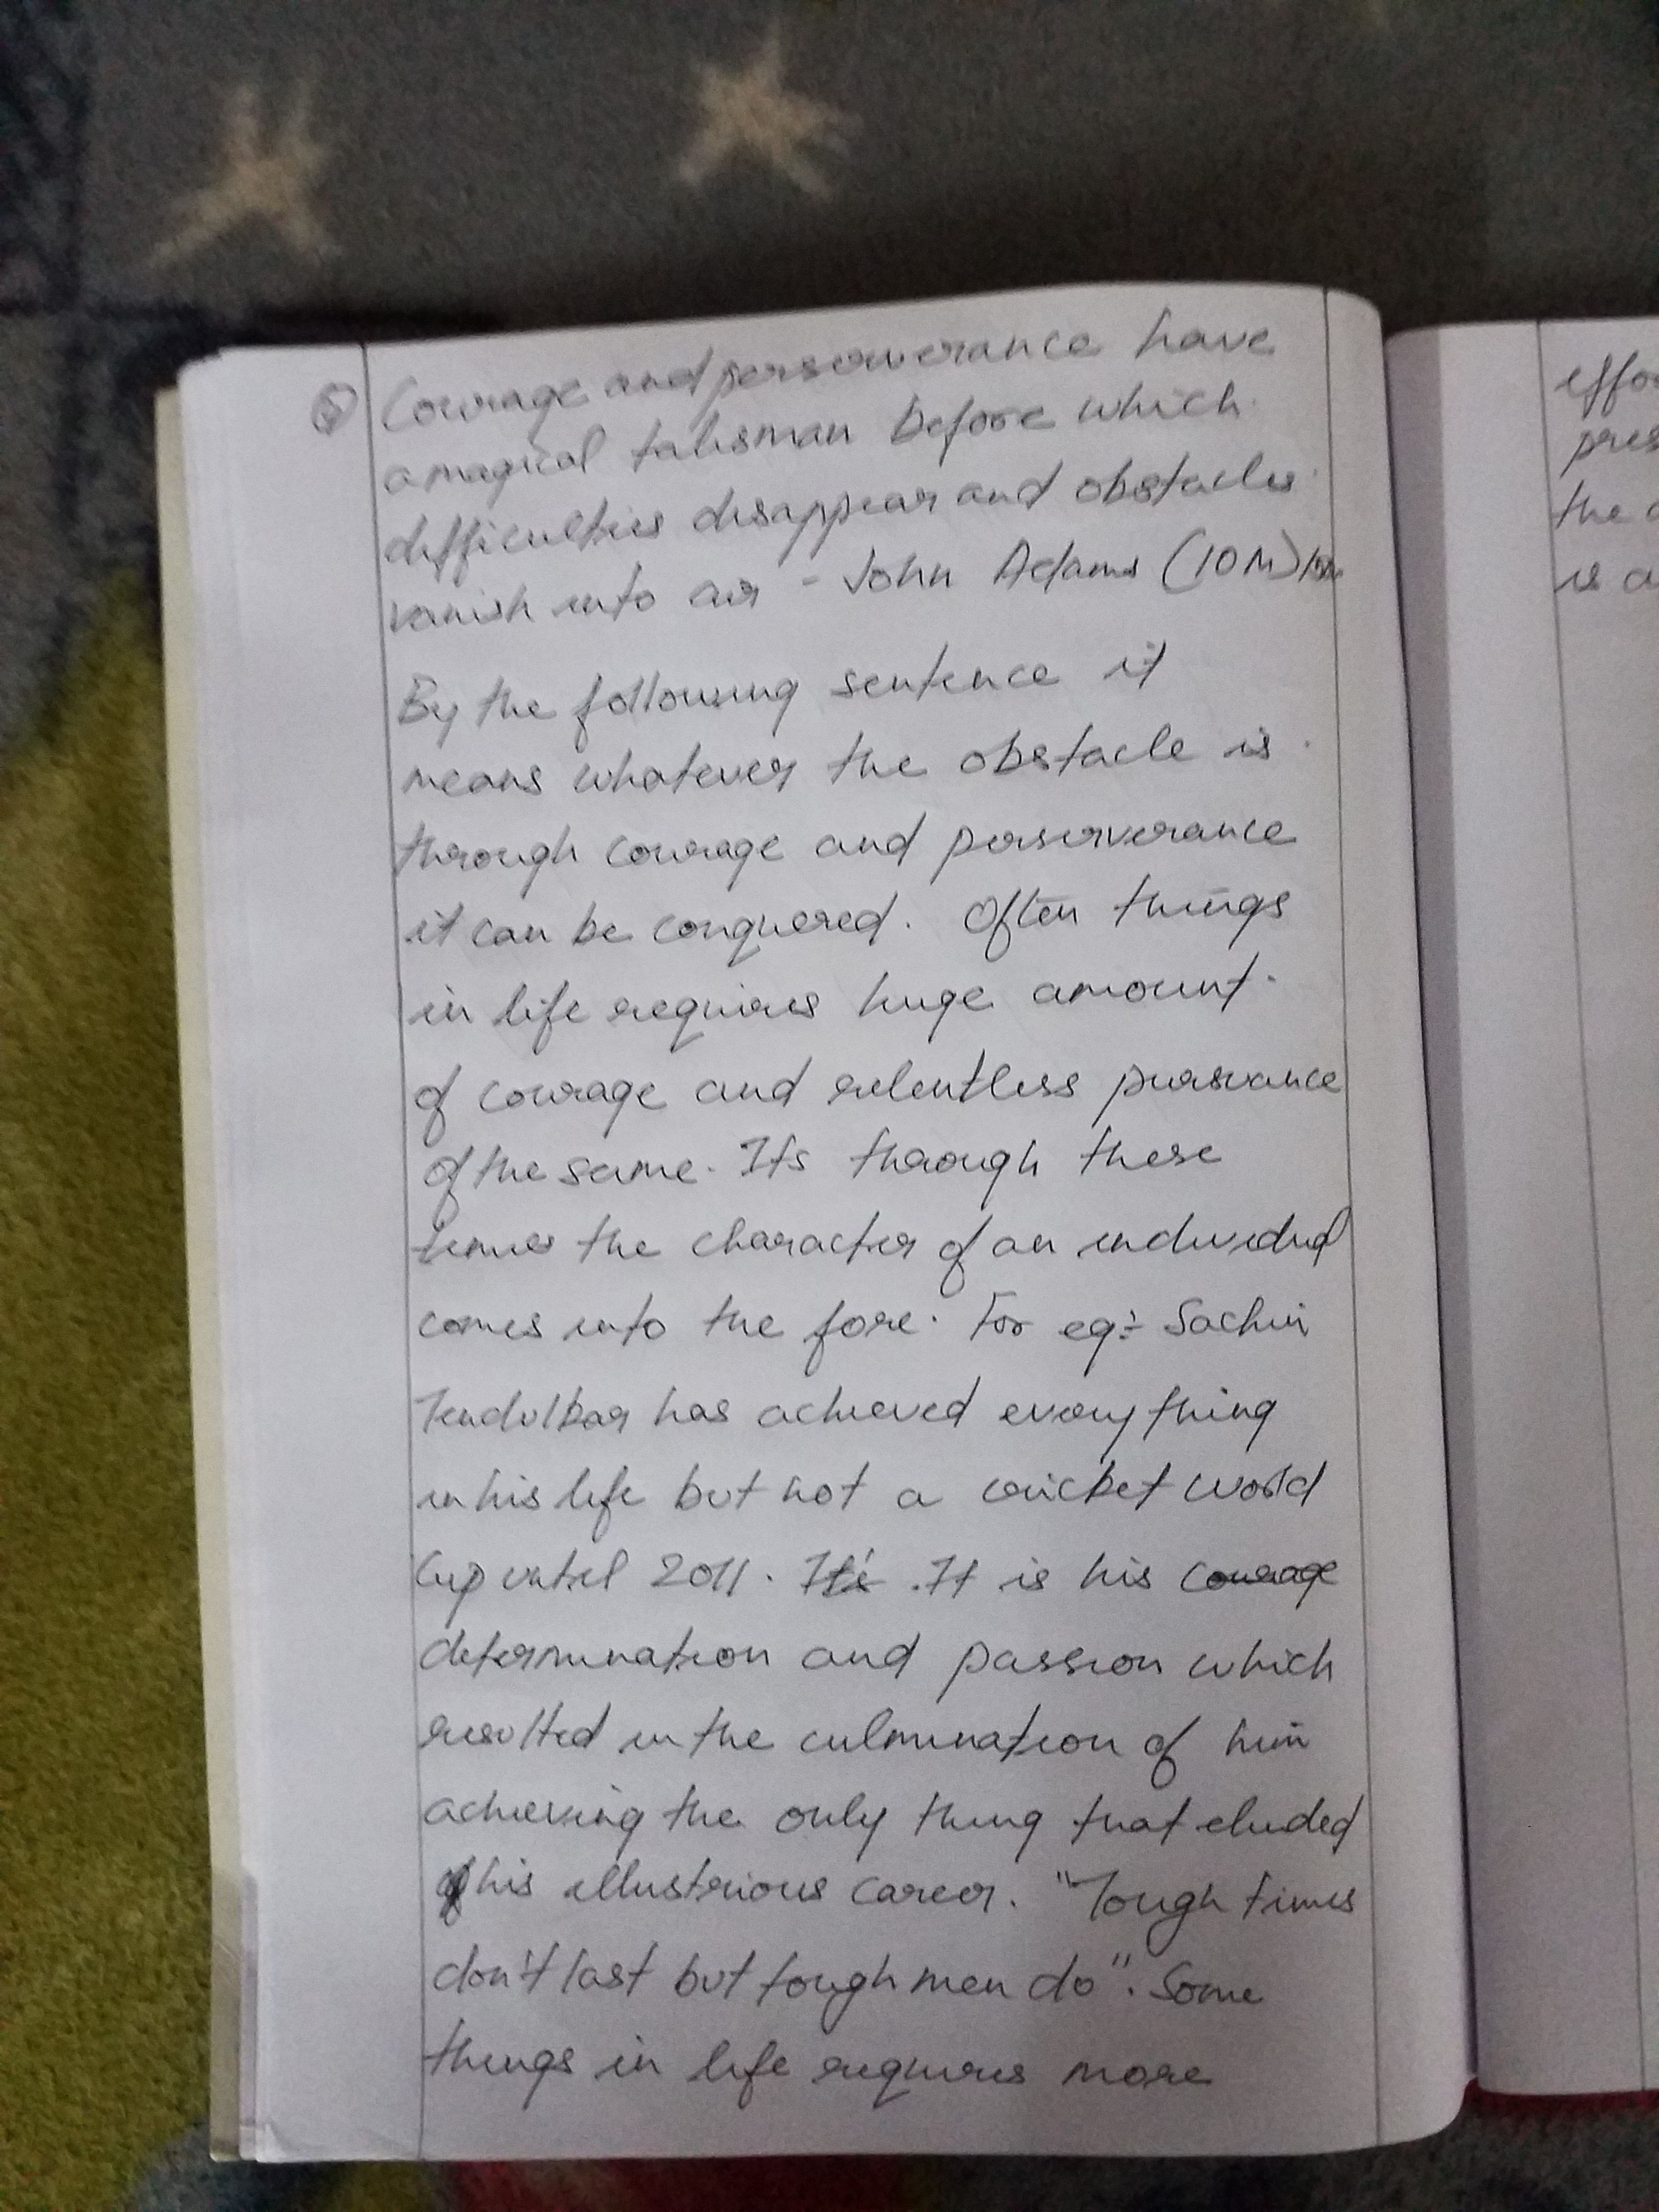 Q Courage and perserverance have
a magical talisman before which
difficulties disappear and obstacles
vanish into air - John Adams (10M)
By the following sentence it
means whatever the obstacle is
through courage and perserverance
it can be conquered. Often things
in life requires huge amount
of courage and relentless pursuance
of the same. Its through these
times the character of an individual
comes into the fore. For eg:- Sachin
Tendulkar has achieved everything
in his life but not a cricket world
Cup until 2011. It's .It is his courage
determination and passion which
resulted in the culmination of him
achieving the only thing that eluded
his illustrious career. "Tough times
don't last but tough men do". Some
things in life requires more
effo
pres
the
is a